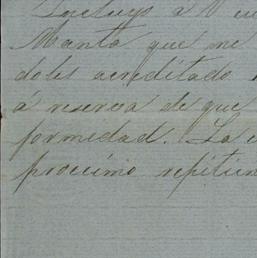 Incluyo a V
Manta que me
doles acreditado
á reserva de que
formidad. La
procsimo repitien